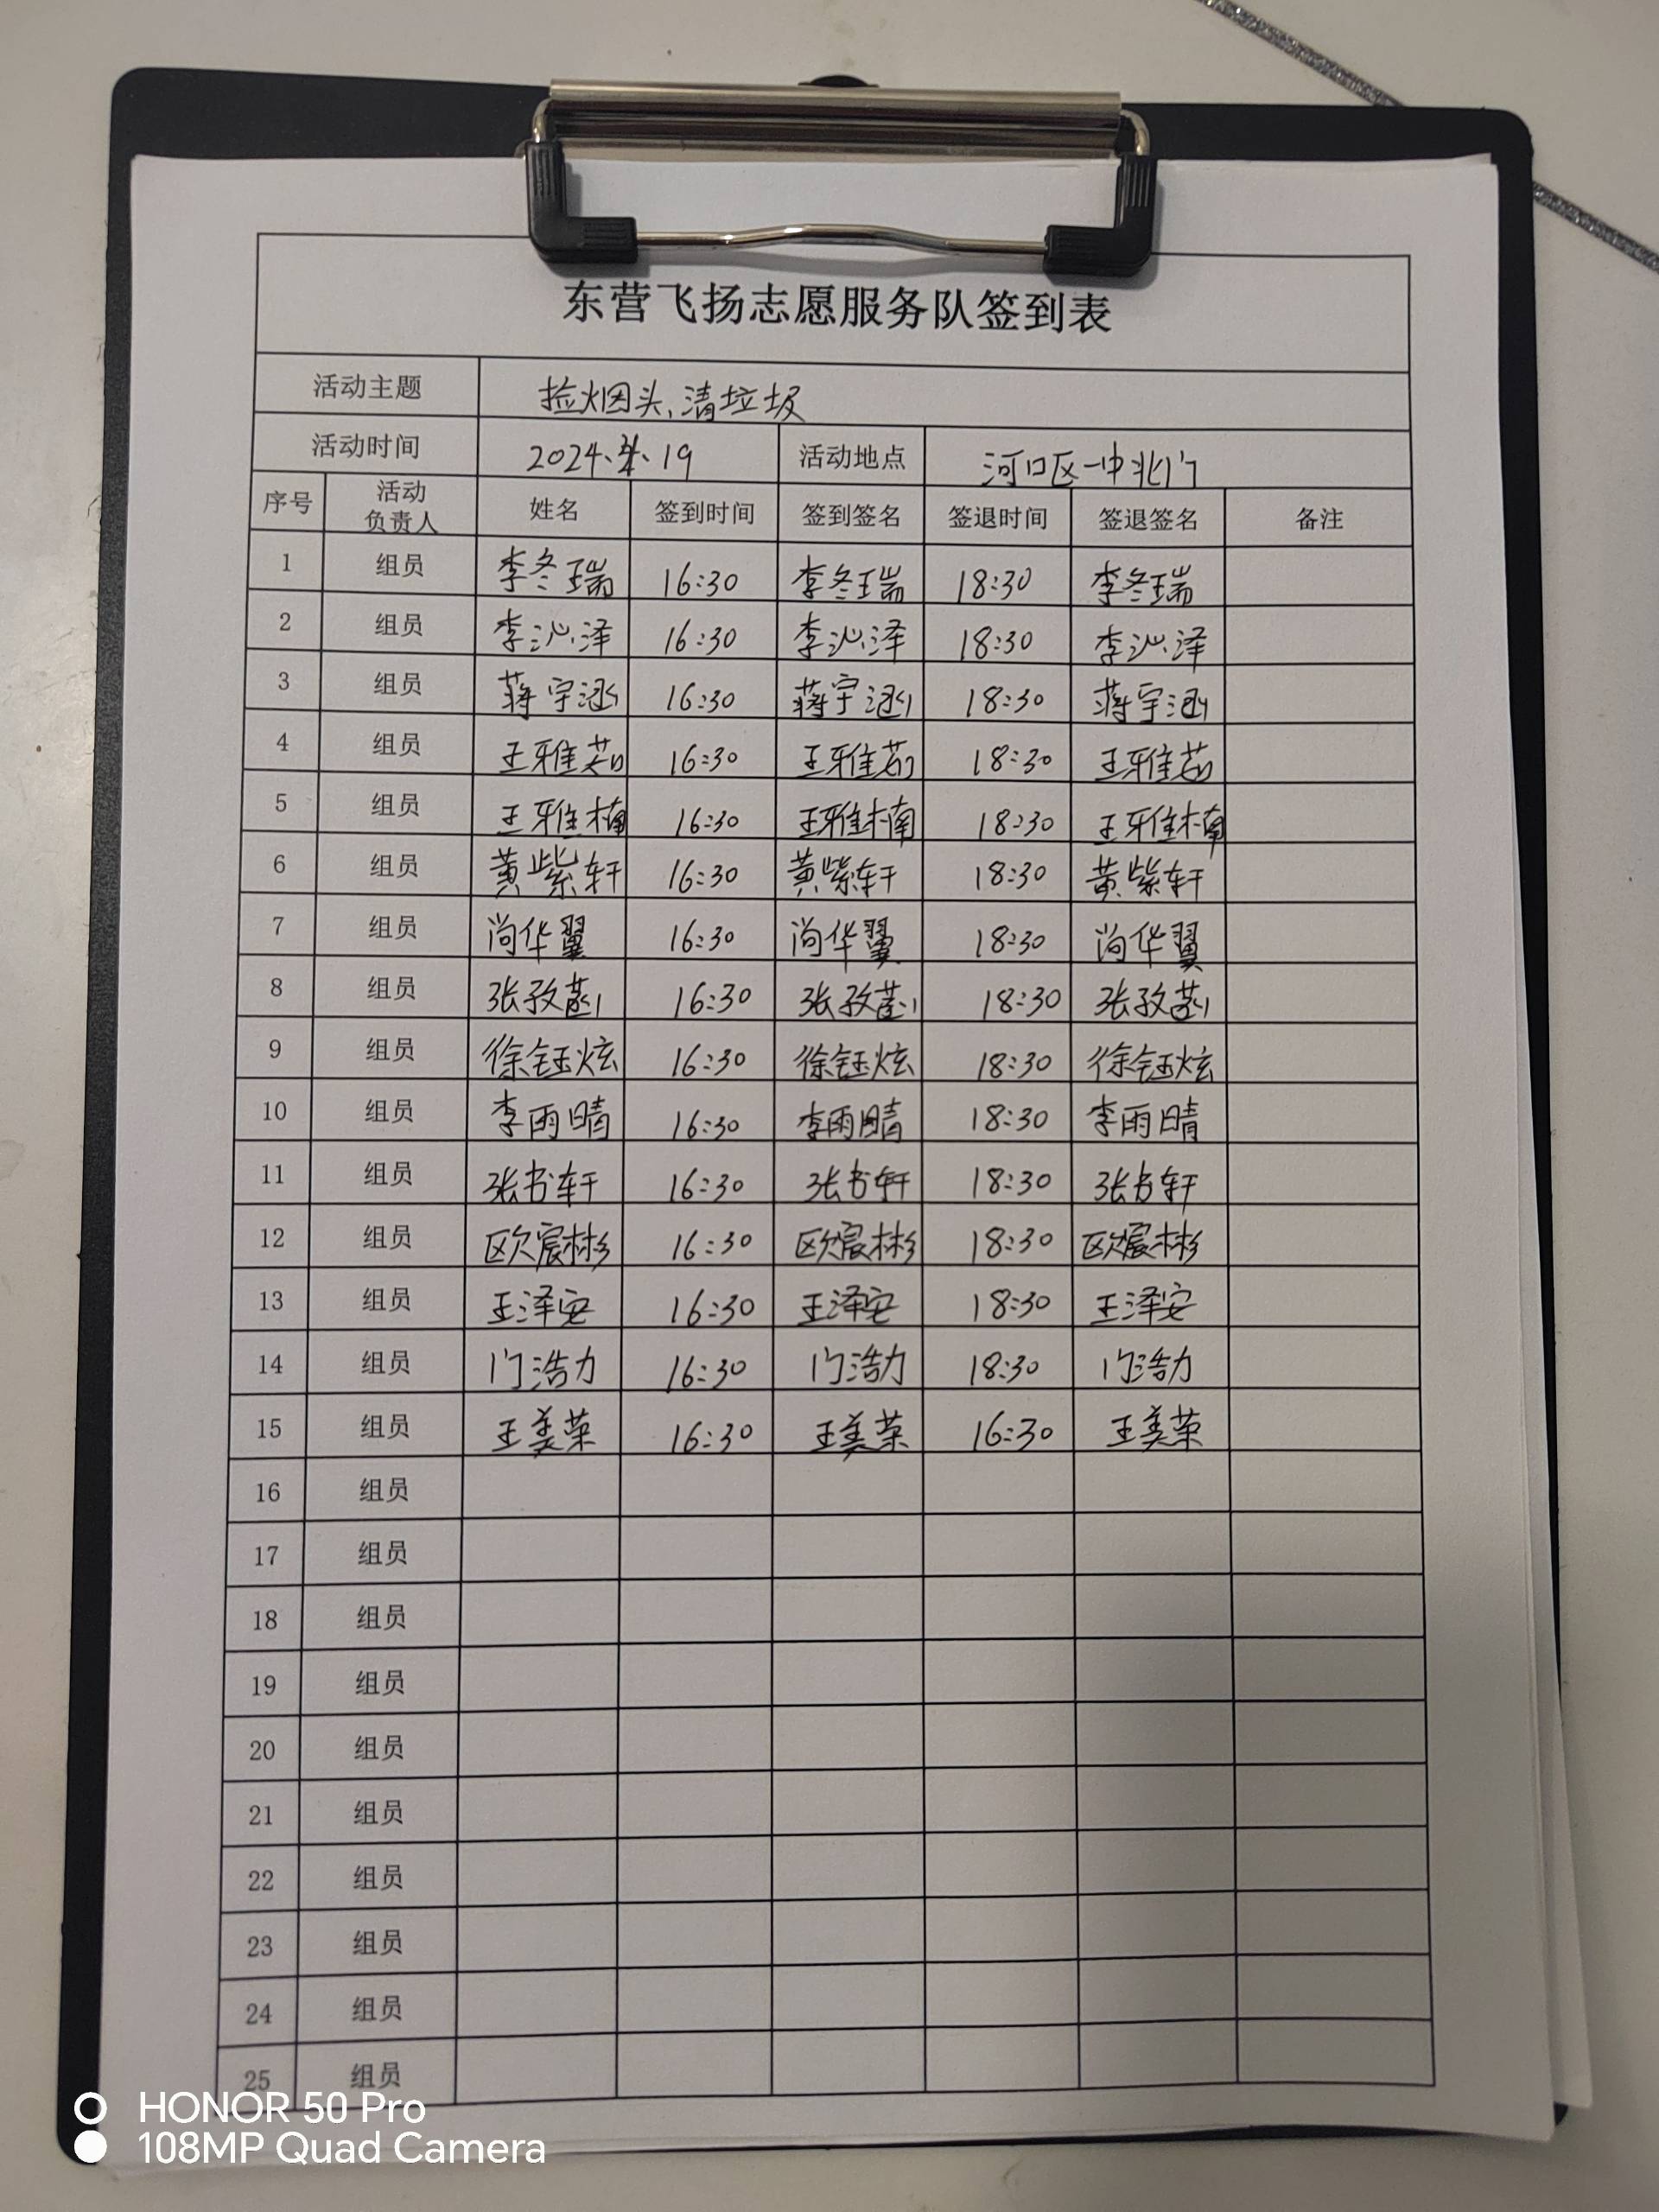 东营飞扬志愿服务队签到表
活动主题 捡烟头,清垃圾
活动时间 2024、4、19 活动地点 河口区一中北门
序号 活动负责人 姓名 签到时间 签到签名 签退时间 签退签名 备注
1 组员 李冬瑞 16:30 李冬瑞 18:30 李冬瑞
2 组员 李沁泽 16:30 李沁泽 18:30 李沁泽
3 组员 蒋宇涵 16:30 蒋宇涵 18:30 蒋宇涵
4 组员 王雅茹 16:30 王雅茹 18:30 王雅茹
5 组员 王雅楠 16:30 王雅楠 18:30 王雅楠
6 组员 黄紫轩 16:30 黄紫轩 18:30 黄紫轩
7 组员 尚华翼 16:30 尚华翼 18:30 尚华翼
8 组员 张孜菡 16:30 张孜菡 18:30 张孜菡
9 组员 徐钰炫 16:30 徐钰炫 18:30 徐钰炫
10 组员 李雨晴 16:30 李雨晴 18:30 李雨晴
11 组员 张书轩 16:30 张书轩 18:30 张书轩
12 组员 欧宸彬 16:30 欧宸彬 18:30 欧宸彬
13 组员 王泽安 16:30 王泽安 18:30 王泽安
14 组员 门浩力 16:30 门浩力 18:30 门浩力
15 组员 王美荣 16:30 王美荣 16:30 王美荣
16 组员
17 组员
18 组员
19 组员
20 组员
21 组员
22 组员
23 组员
24 组员
25 组员
HONOR 50 Pro
108MP Quad Camera